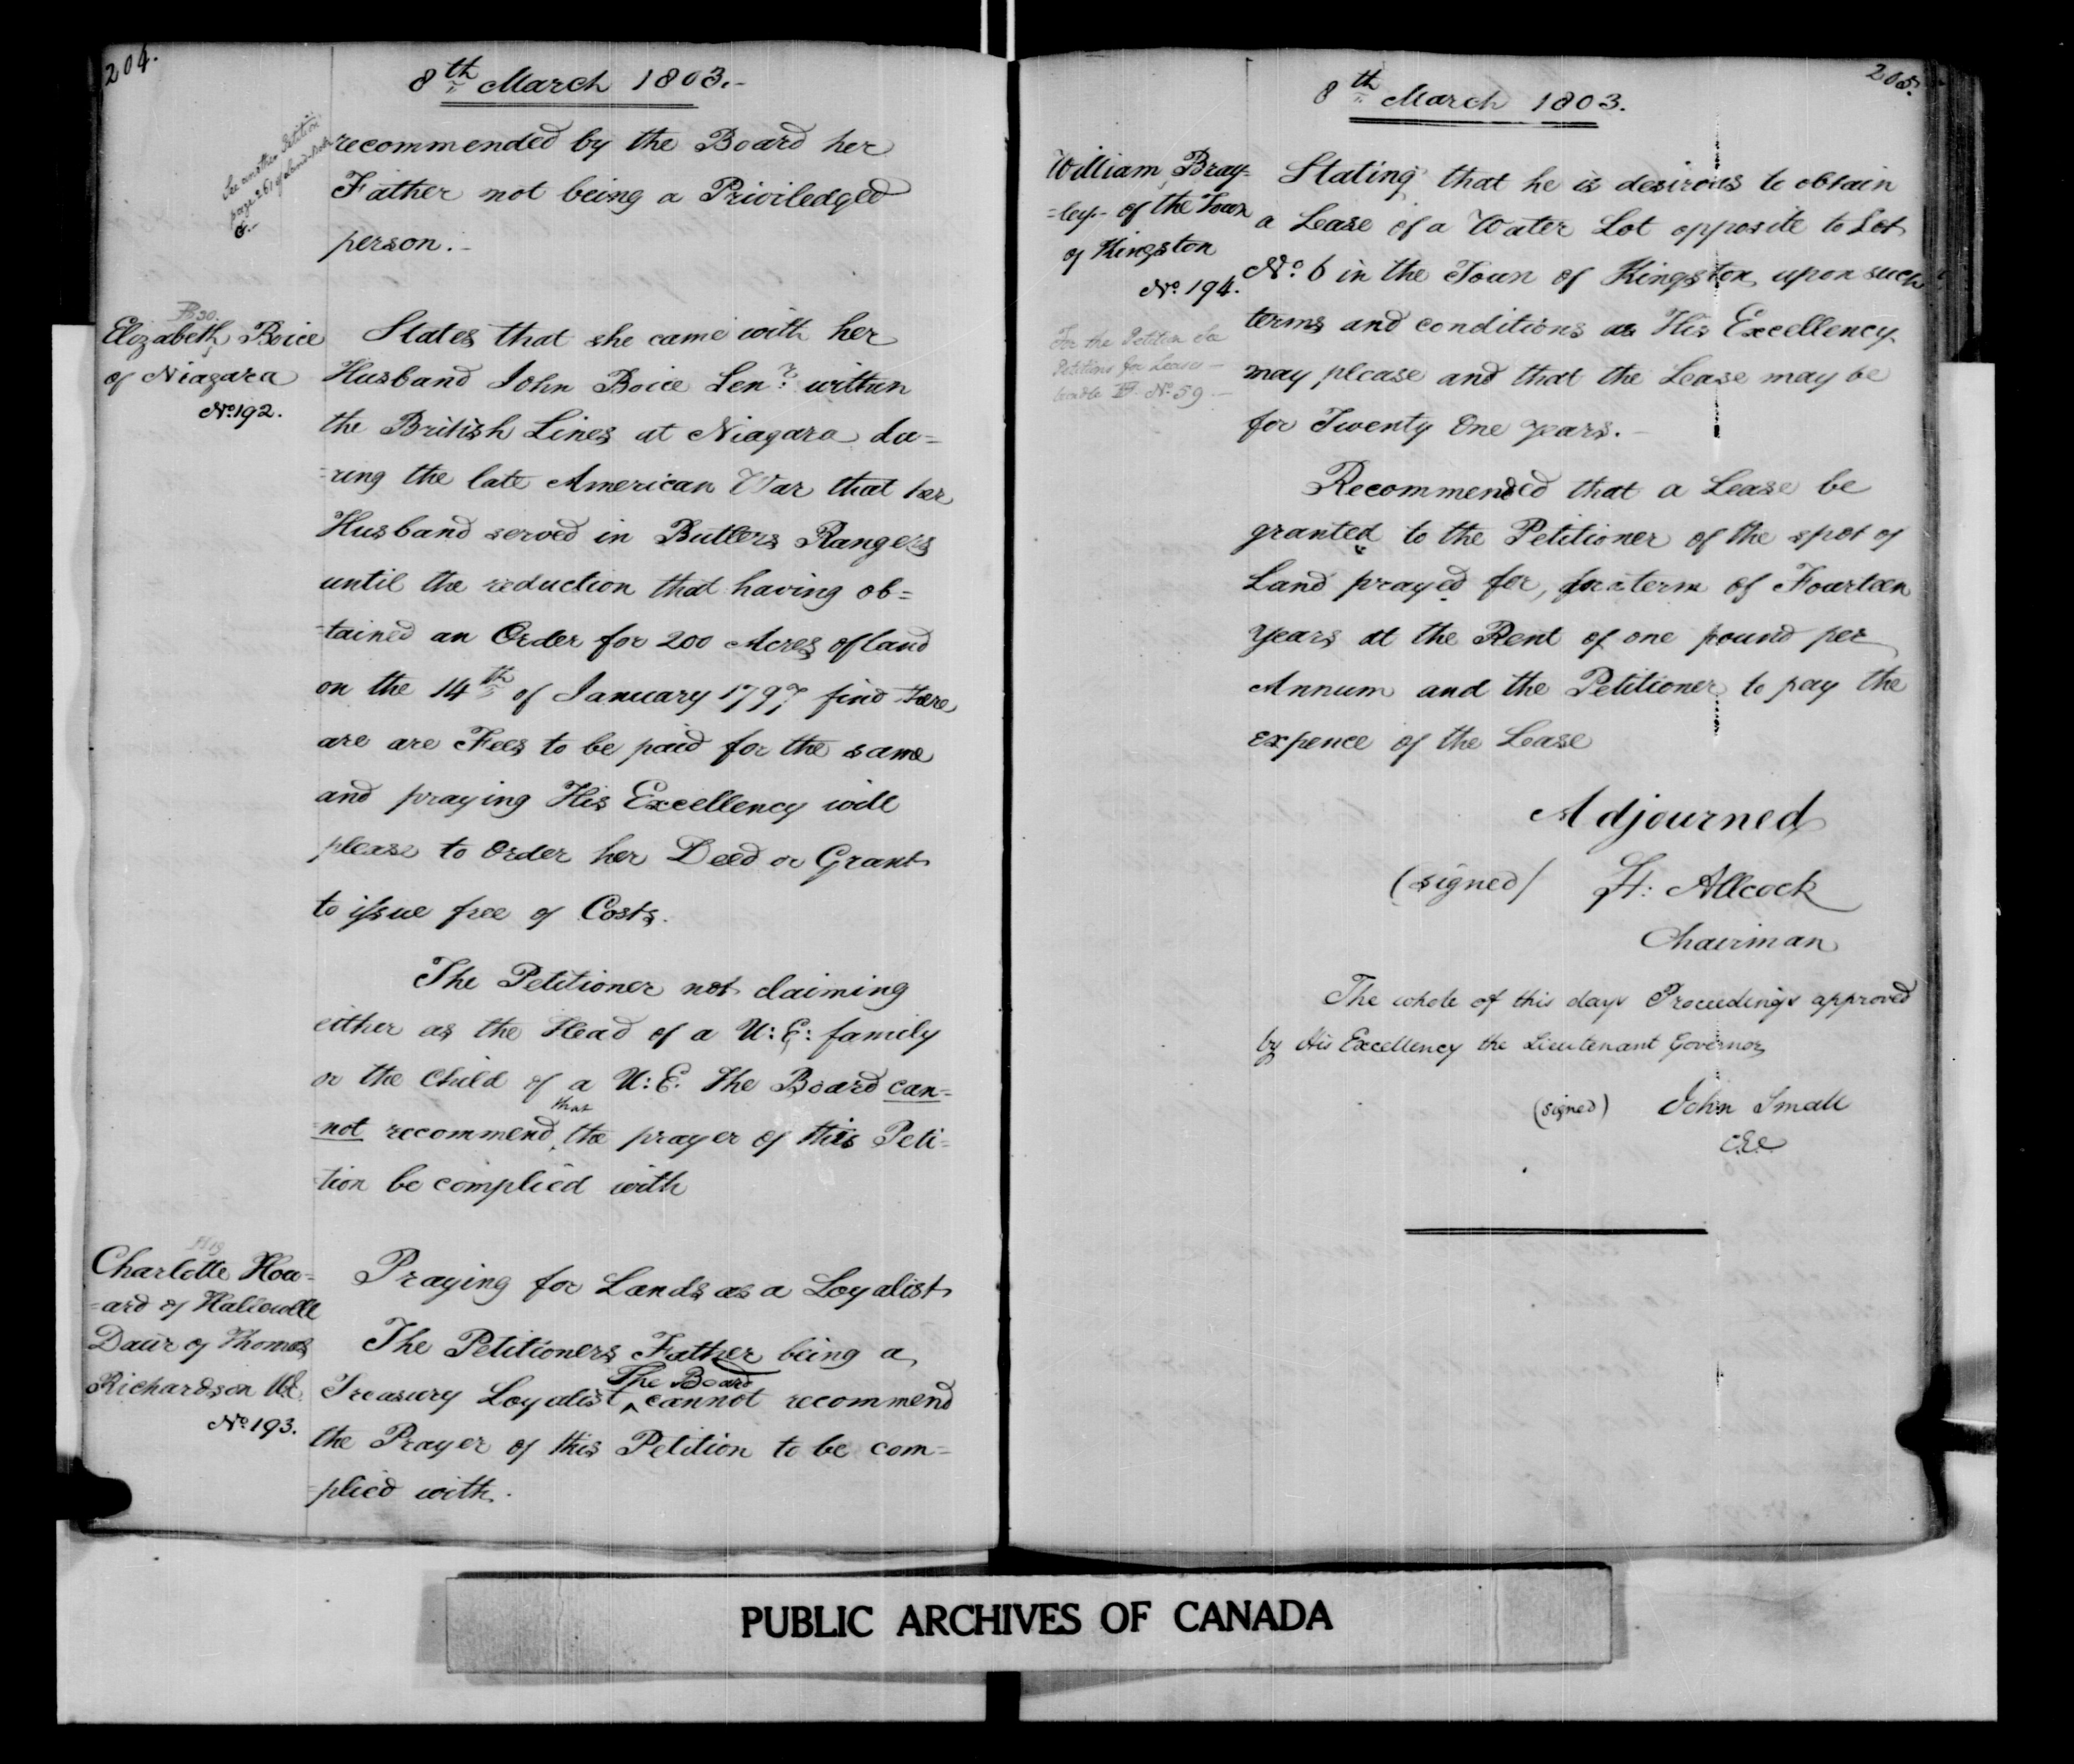 204.
8th March 1803.-
See another Petition
page 261 of Land Book
C.-
recommended by the Board her
Father not being a Priviledged
person.-
B 30.
Elizabeth Boice
of Niagara
No. 192.
States that she came with her
Husband John Boice Senr. within
the British Lines at Niagara du=
=ring the late American War that her
Husband served in Butlers Rangers
until the reduction that having ob=
=tained an Order for 200 Acres of land
on the 14th of January 1797 find there
are are Fees to be paid for the same
and praying His Excellency will
please to Order her Deed or Grant
to issue free of Costs.
The Petitioner not claiming
either as the Head of a U: E: family
or the Child of a U: E. the Board can=
=not recommend that the prayer of this Peti=
=tion be complied with
H 19
Charlotte How=
=ard of Hallowell
Daur of Thomas
Richardson UE.
No. 193.
Praying for Lands as a Loyalist
The Petitioners Father being a
Treasury Loyalist The Board cannot recommend
the Prayer of this Petition to be com=
=plied with.
205.
8th March 1803.
William Bray=
=ley- of the Town
of Kingston
No. 194.
For the Petition See
Petitions for Leases -
bundle No. 59 -
Stating that he is desirous to obtain
a Lease of a Water Lot opposite to Lot
No. 6 in the Town of Kingston upon such
terms and conditions as His Excellency
may please and that the Lease may be
for Twenty One years.-
Recommended that a Lease be
granted to the Petitioner of the spot of
Land prayed for, for a term of Fourteen
years at the Rent of one pound per
Annum and the Petitioner to pay the
expence of the Lease
Adjourned
(signed) H: Allcock
Chairman
The whole of this days Proceedings approved
by His Excellency the Lieutenant Governor
(signed) John Small
C.E.C
PUBLIC ARCHIVES OF CANADA